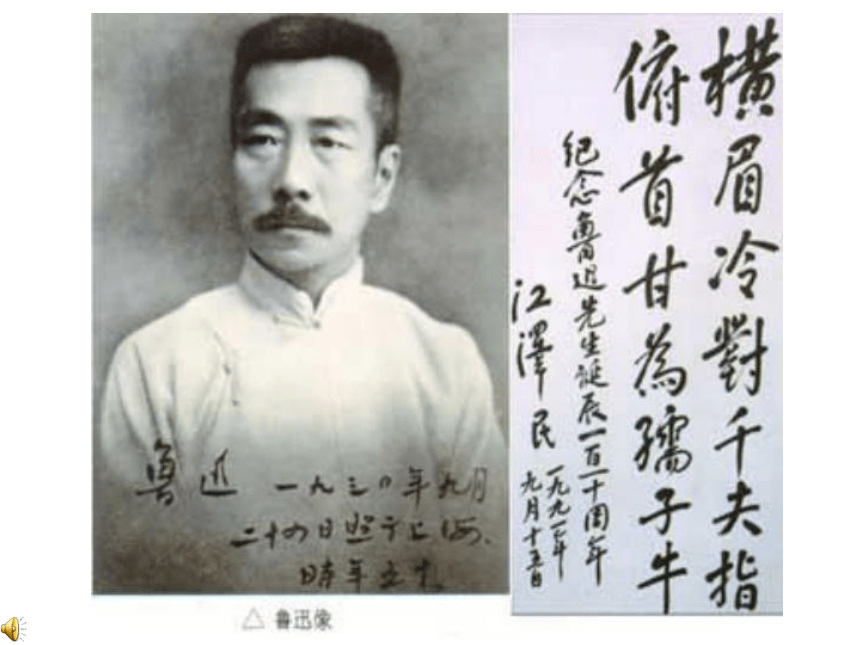 魯迅 一九三〇年九月
二十四日照于上海,
時年五十。
△ 鲁迅像
橫眉冷對千夫指
俯首甘為孺子牛
纪念魯迅先生诞辰一百一十周年
江澤民
一九九一年
九月十五日